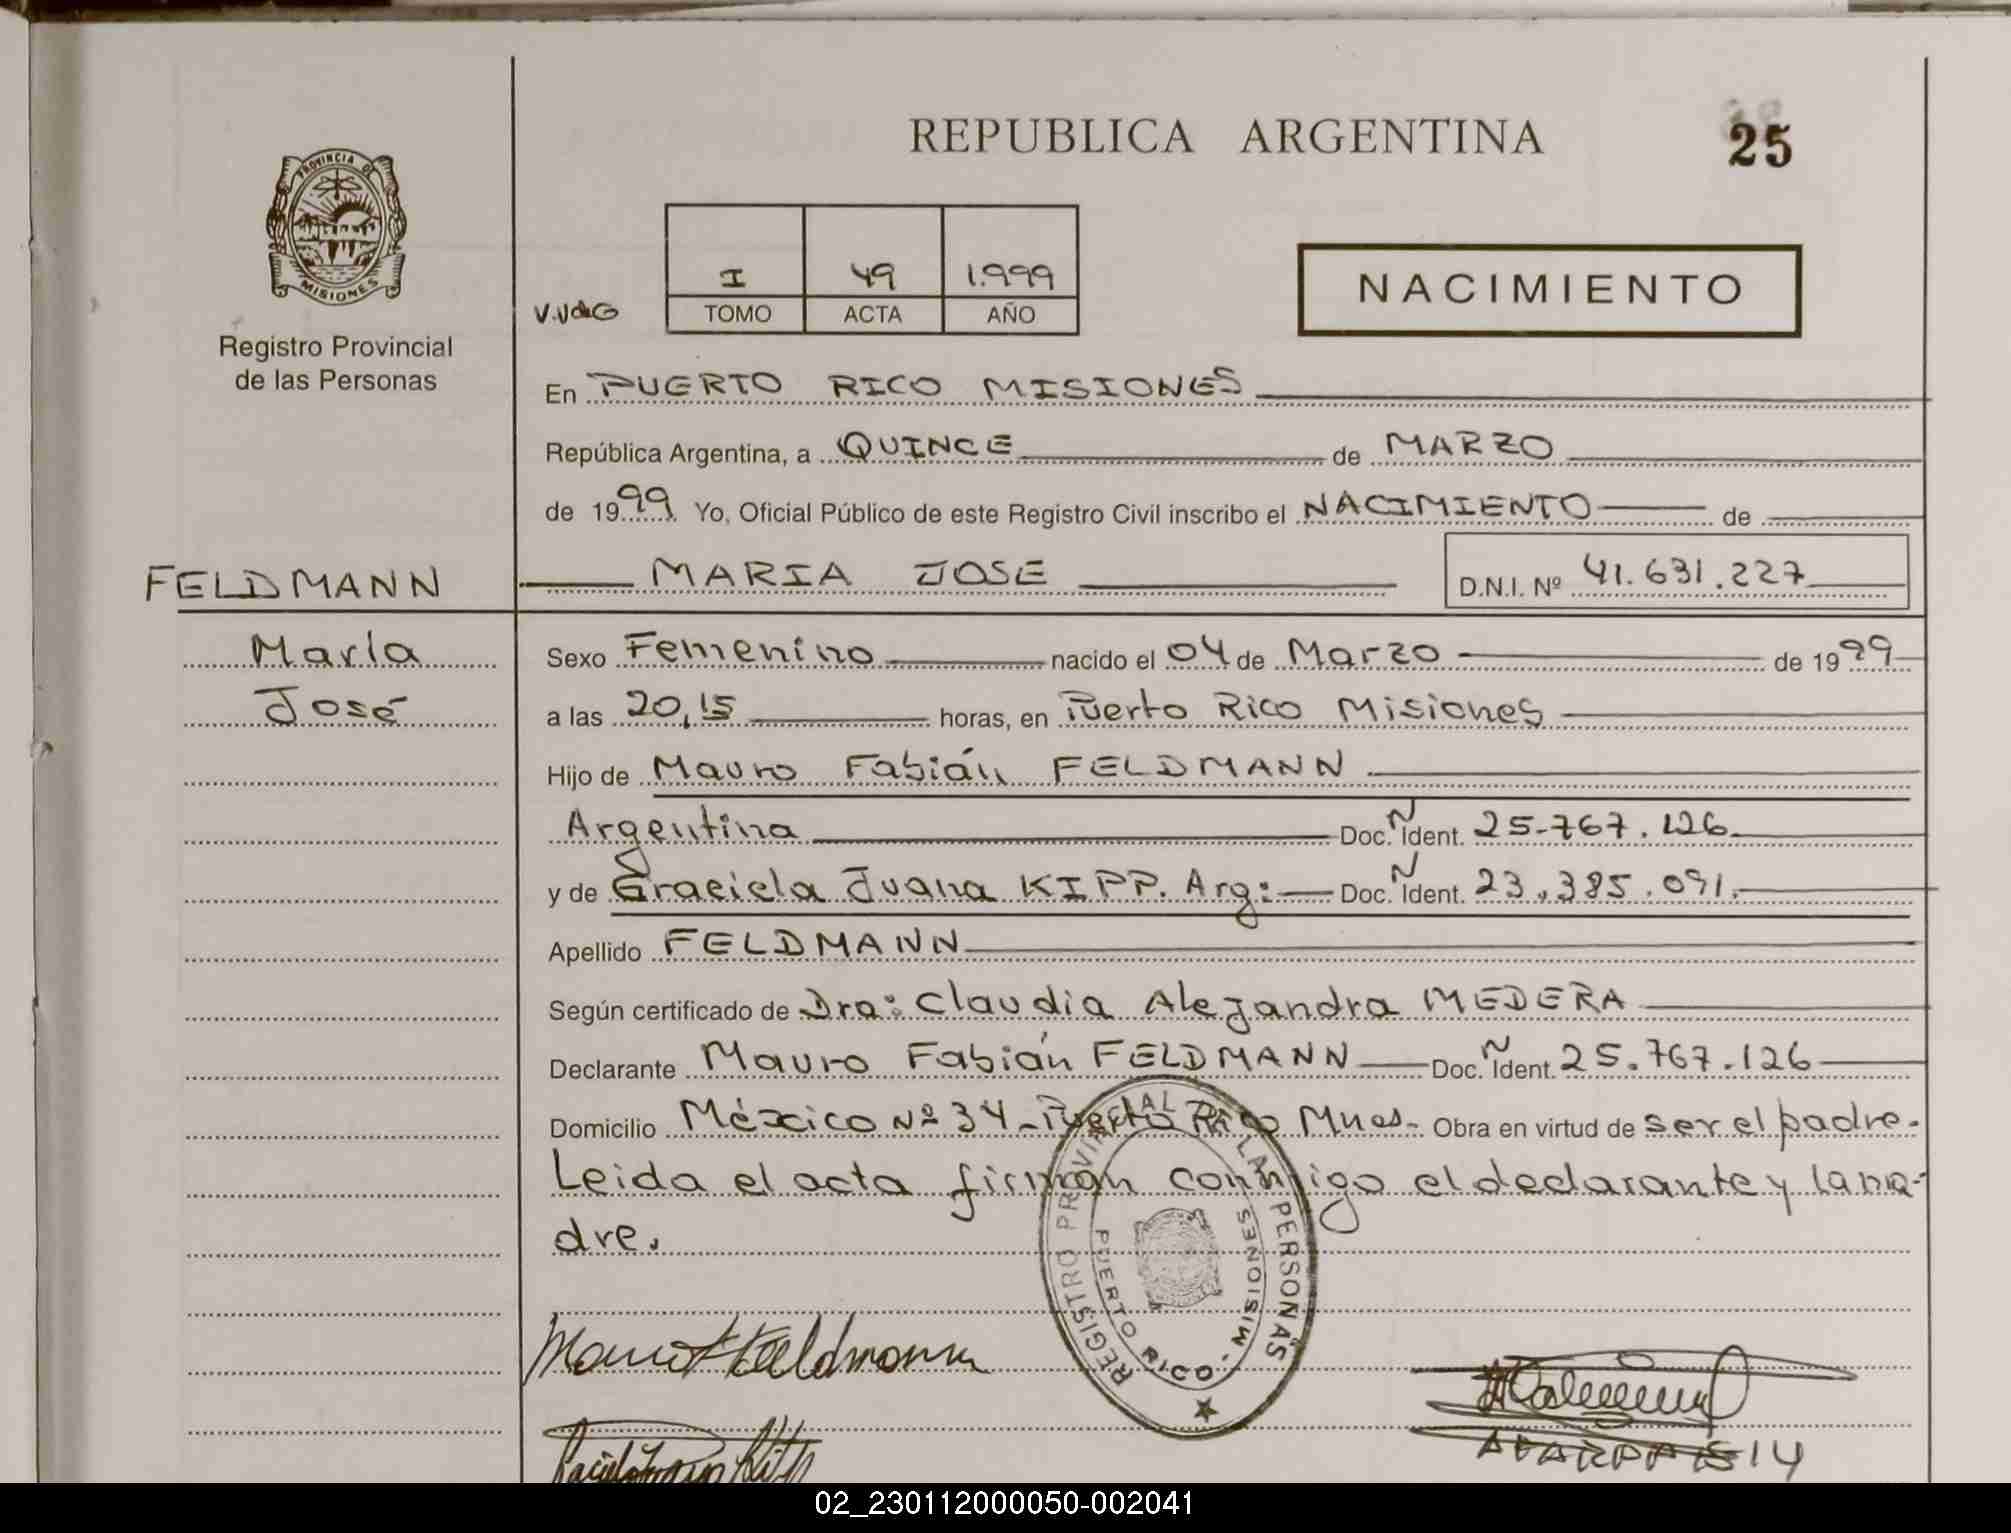 REPUBLICA ARGENTINA
25
PROVINCIA DE
MISIONES
Registro Provincial
de las Personas
I 49 1.999
TOMO ACTA AÑO
NACIMIENTO
En PUERTO RICO MISIONES
República Argentina, a QUINCE de MARZO
de 1999 Yo, Oficial Público de este Registro Civil inscribo el NACIMIENTO de
FELDMANN
MARIA JOSE D.N.I. Nº 41.631.227
María
José
Sexo Femenino nacido el 04 de Marzo de 1999
a las 20,15 horas, en Puerto Rico Misiones
Hijo de Mauro Fabián FELDMANN
Argentina Doc. N Ident. 25.767.126
y de Graciela Juana KIPP. Arg: Doc. N Ident. 23.385.091.
Apellido FELDMANN
Según certificado de Dra: Claudia Alejandra MEDERA
Declarante Mauro Fabián FELDMANN Doc. N Ident. 25.767.126
Domicilio México Nº 34 - Puerto Rico Mnes - Obra en virtud de ser el padre.
Leida el acta firman conmigo el declarante y la ma-
dre.
REGISTRO PROVINCIAL DE LAS PERSONAS
PUERTO RICO - MISIONES
Mauro F Feldmann
02_230112000050-002041